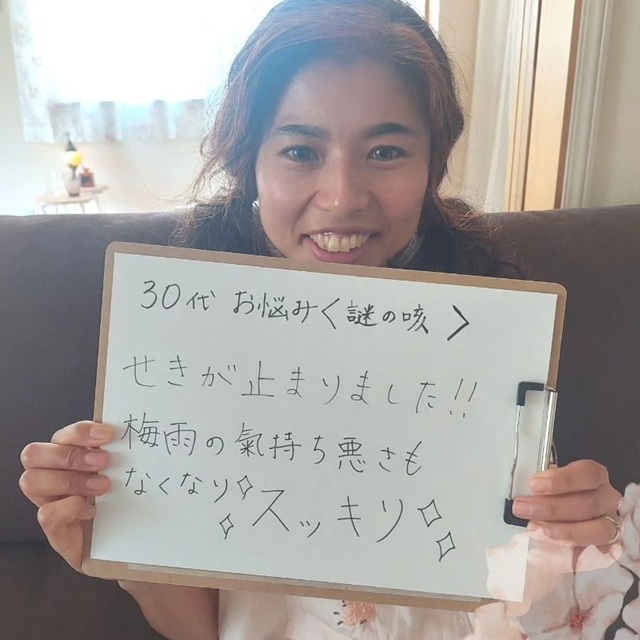 30代 お悩み〈謎の咳〉
せきが止まりました!!
梅雨の氣持ち悪さも
なくなり✧
✧スッキリ✧✧